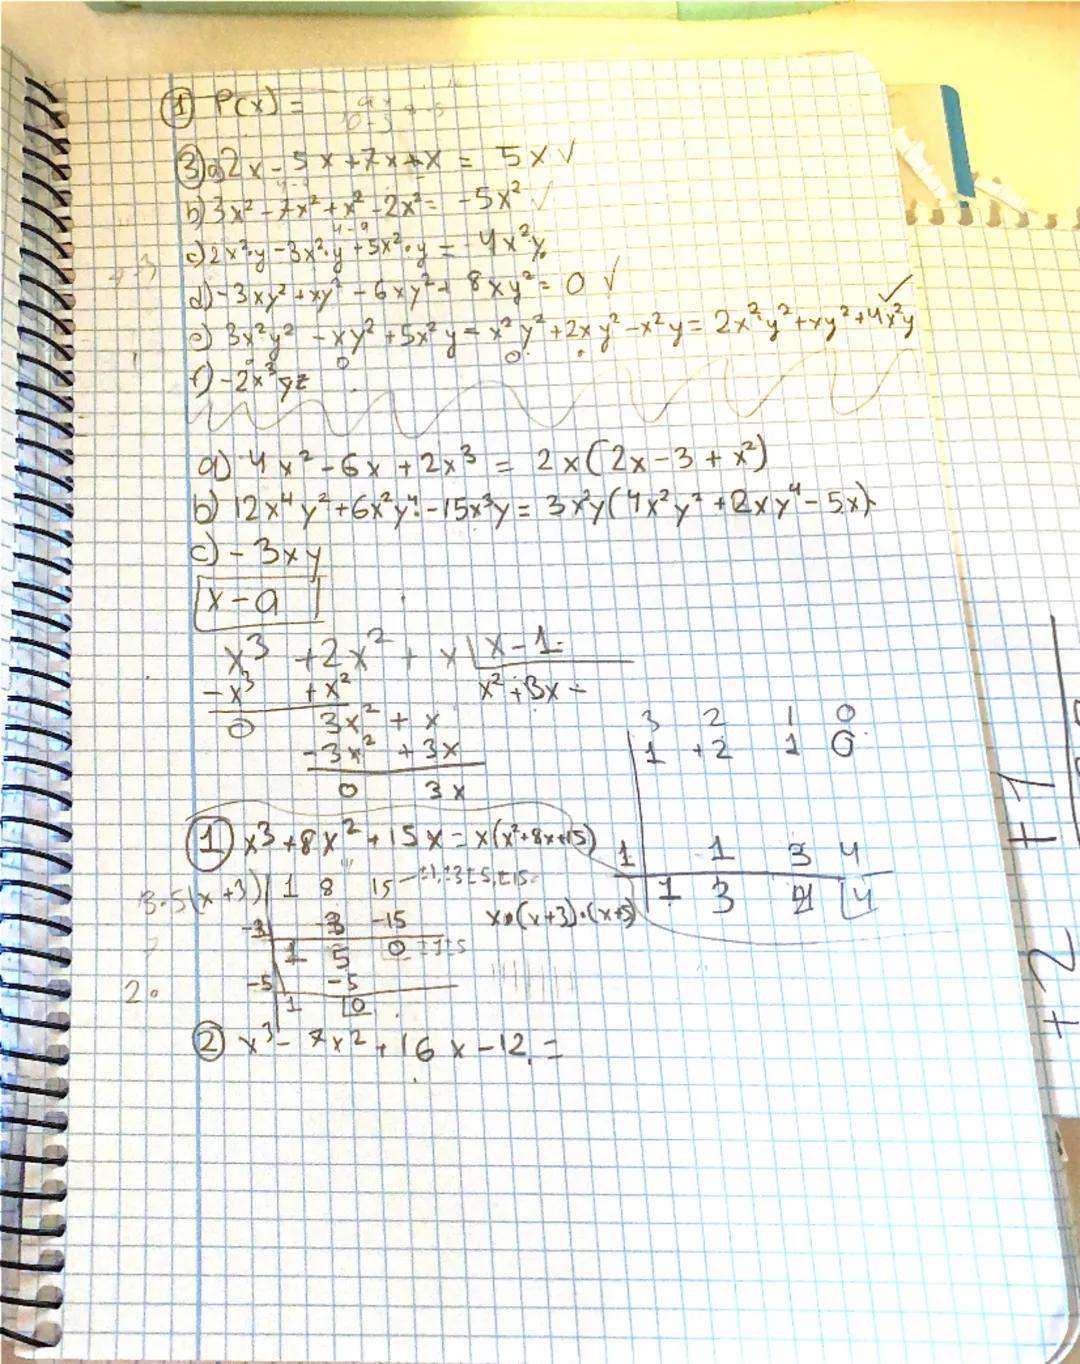 ① P(x) =
③a) 2x - 5x + 7x + x = 5x ✓
b) 3x² - 7x² + x² - 2x² = -5x² ✓
c) 2x²·y - 3x²·y + 5x²·y = 4x²y
d) -3xy² + xy² - 6xy² + 8xy² = 0 ✓
e) 3x²y² - xy² + 5x²y - x²y² + 2xy² - x²y = 2x²y² + xy² + 4x²y ✓
f) -2x³yz
a) 4x² - 6x + 2x³ = 2x(2x - 3 + x²)
b) 12x⁴y² + 6x²y⁴ - 15x³y = 3x²y(4x²y² + 2xy⁴ - 5x)
c) -3xy
x - a
x³ + 2x² + x | x - 1
-x³ + x² x² + 3x +
0 3x² + x
-3x² + 3x
0 3x
3 2 1 0
1 +2 1 0
1 1 3 4
1 3 4 4
① x³ + 8x² + 15x = x(x²+8x+15)
3·5 (x+3) 1 8 15 ±1, ±3 ±5, ±15
-3 -3 -15 x·(x+3)·(x+5)
1 5 0 ±1±5
-5 -5
1 0
2.
② x³ - 7x² + 16x - 12 =
+2 +7